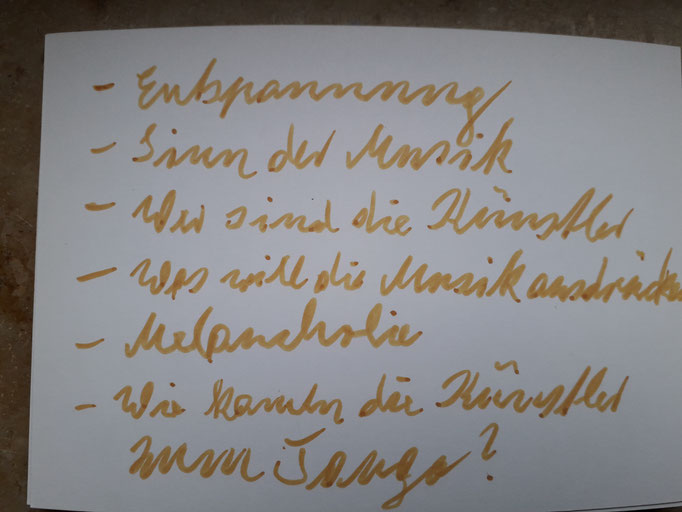 - Entspannung
- Sinn der Musik
- Wer sind die Künstler
- Was will die Musik ausdrücken
- Melancholie
- Wie kamen die Künstler
zum Tango?